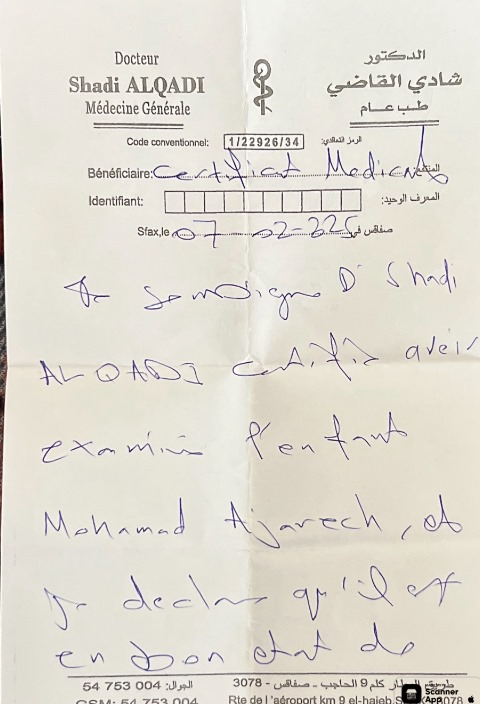 Docteur
Shadi ALQADI
Médecine Générale
الدكتور
شادي القاضي
طب عام
Code conventionnel: 1/22926/34 الرمز التعاقدي:
Bénéficiaire: Certificat Medical
Identifiant: المعرف الوحيد:
Sfax,le 07 02-225 صفاقس في
Je soussigné Dr Shadi
ALQADI certifie avoir
examiné l'enfant
Mohamad Ajarech, et
je declare qu'il est
en bon etat de
54 753 004 :الجوال
3078 - طريق المطار كلم 9 الحاجب - صفاقس
GSM: 54 753 004
Rte de l'aéroport km 9 el-hajeb,S 3078
Scanner
App